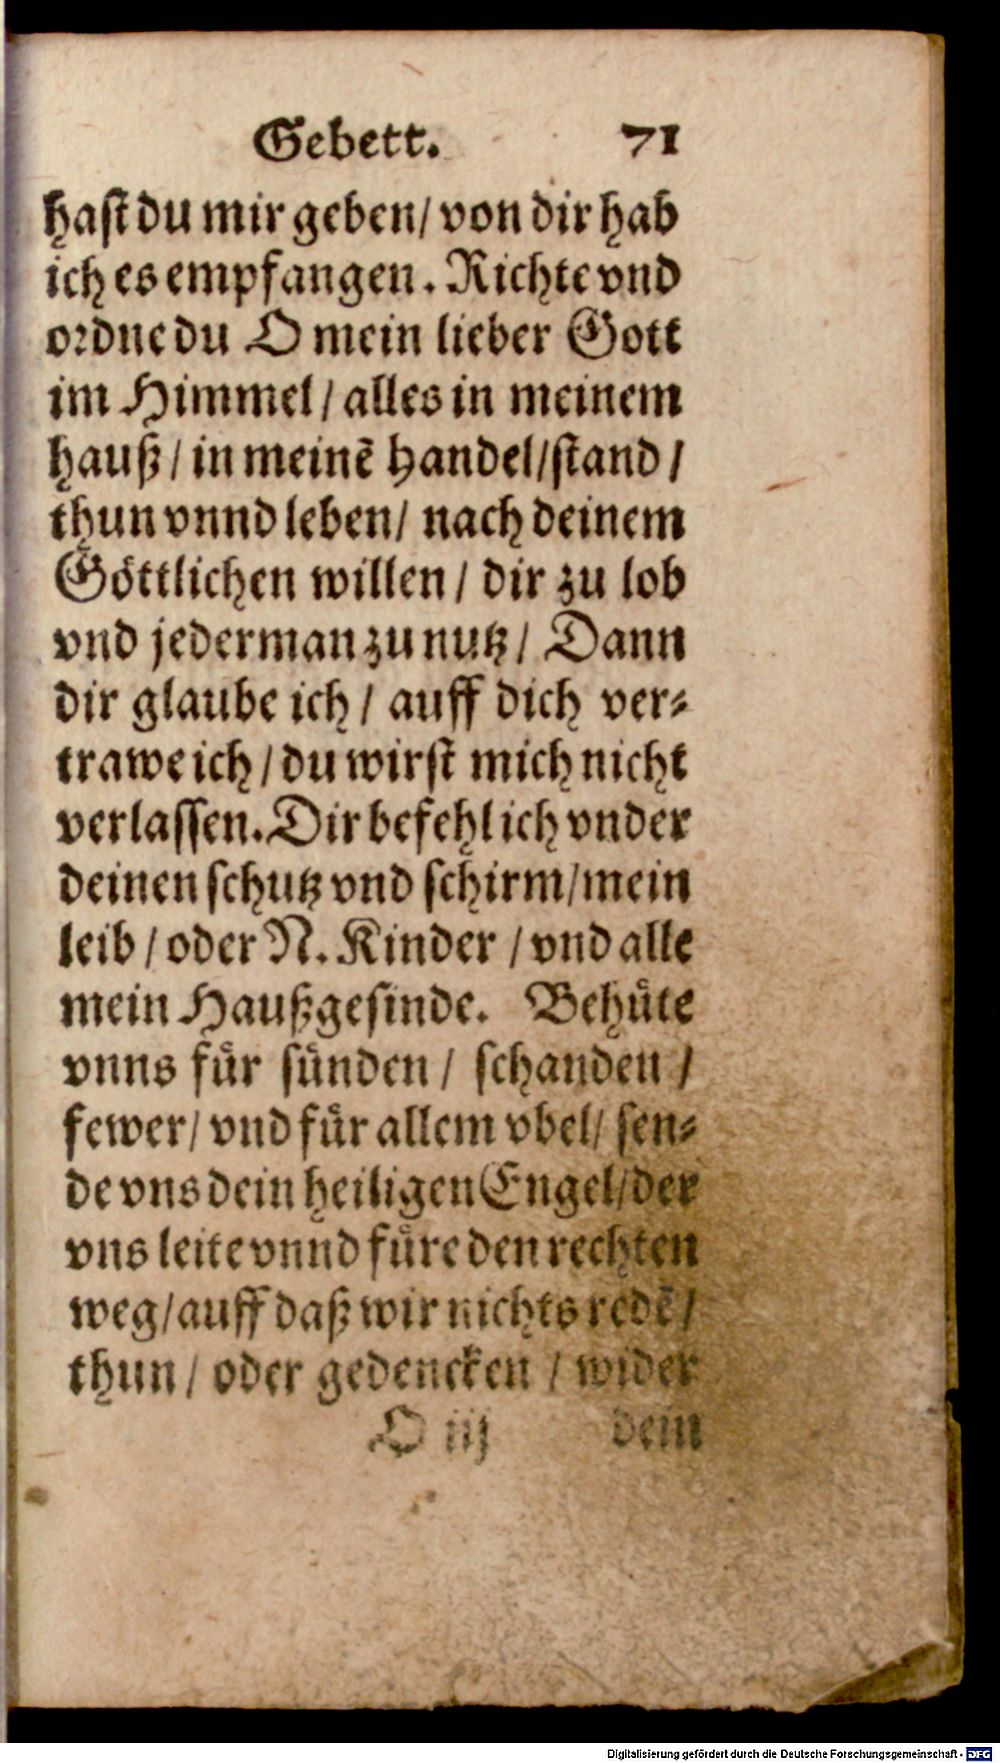 Gebett. 71
hast du mir geben / von dir hab
ich es empfangen. Richte vnd
ordne du O mein lieber Gott
im Himmel / alles in meinem
hauß / in meinē handel / stand /
thun vnnd leben / nach deinem
Göttlichen willen / dir zu lob
vnd jederman zu nutz / Dann
dir glaube ich / auff dich ver-
trawe ich / du wirst mich nicht
verlassen. Dir befehl ich vnder
deinen schutz vnd schirm / mein
leib / oder N. Kinder / vnd alle
mein Haußgesinde. Behüte
vnns für sünden / schanden /
fewer / vnd für allem vbel / sen-
de vns dein heiligen Engel / der
vns leite vnnd füre den rechten
weg / auff daß wir nichts redē /
thun / oder gedencken / wider
O iij dein
Digitalisierung gefördert durch die Deutsche Forschungsgemeinschaft - DFG